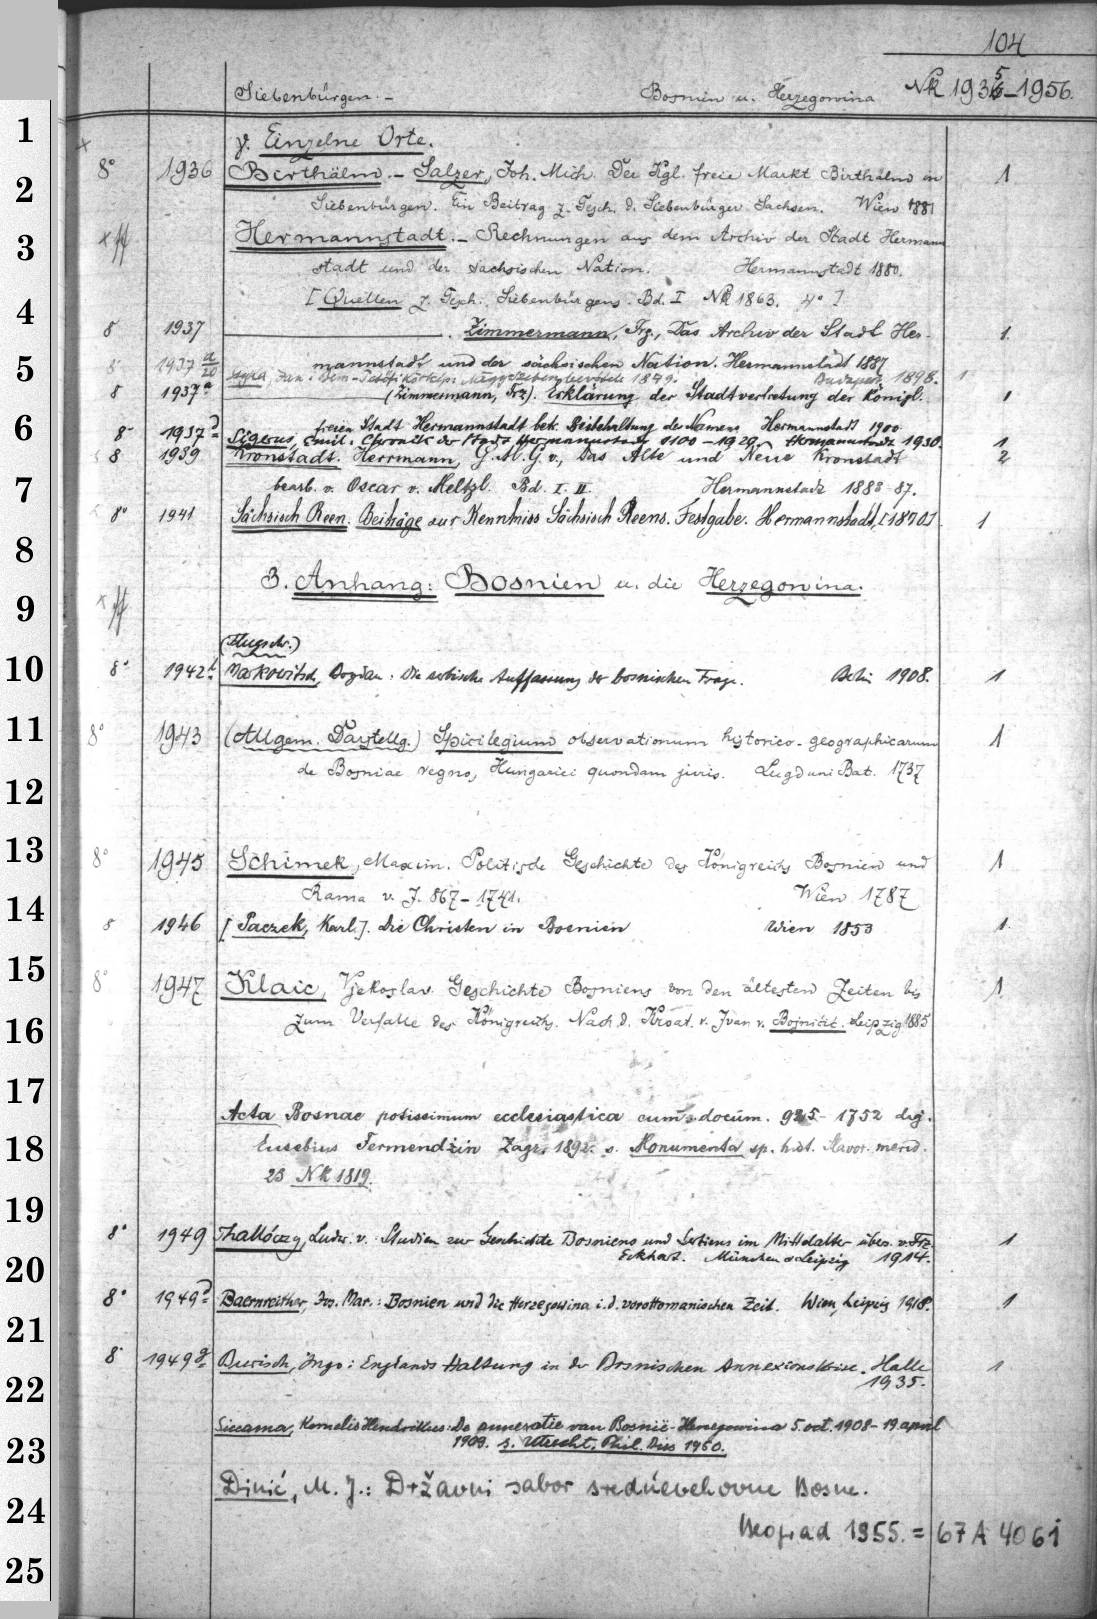 104
Siebenbürgen. - Bosnien u. Herzegowina NK 1935-1956.
1
γ. Einzelne Orte.
2
8° 1936 Birthälm. - Salzer, Joh. Mich. Der Kgl. freie Markt Birthälm in 1
Siebenbürgen. Ein Beitrag z. Gesch. d. Siebenbürger Sachsen. Wien 1881
3
Hermannstadt. - Rechnungen aus dem Archiv der Stadt Hermann
stadt und der sächsischen Nation. Hermannstadt 1880.
4
[Quellen z. Gesch. Siebenbürgens. Bd. I NK 1863. 4°]
8 1937 Zimmermann, Frz., Das Archiv der Stadt Her- 1.
5
mannstadt und der sächsischen Nation. Hermannstadt 1887
8 1937 a/20 Nagyszeben bevétele 1849. Budapest 1898. 1
8 1937a (Zimmermann, Frz). Erklärung der Stadtvertretung der Königl. 1
6
freien Stadt Hermannstadt betr. Beibehaltung des Namens Hermannstadt 1900
8 1937d Sigerus, Emil: Chronik der Stadt Hermannstadt 1100-1929. Hermannstadt 1930. 1
8 1939 Kronstadt. Herrmann, G. M. G. v., Das Alte und Neue Kronstadt 2
7
bearb. v. Oscar v. Meltzl. Bd. I. II. Hermannstadt 1883-87.
8° 1941 Sächsisch Reen. Beiträge zur Kenntniss Sächsisch Reens. Festgabe. Hermannstadt, [1870] 1
8
3. Anhang: Bosnien u. die Herzegowina.
9
(Flugschr.)
10
8° 1942 Markowitsch, Bogdan: Die serbische Auffassung der bosnischen Frage. Berlin 1908. 1
11
8° 1943 (Allgem. Darstellg.) Spicilegium observationum historico-geographicarum 1
de Bosniae regno, Hungarici quondam juris. Lugduni Bat. 1737
12
13
8° 1945 Schimek, Maxim. Politische Geschichte des Königreichs Bosnien und 1
Rama v. J. 867-1741. Wien 1787
14
8 1946 [Paczek, Karl.]. Die Christen in Bosnien Wien 1853 1.
15
8° 1947 Klaic, Vjekoslav. Geschichte Bosniens von den ältesten Zeiten bis 1
16
zum Verfalle des Königreichs. Nach d. Kroat. v. Ivan v. Bojničić. Leipzig 1885
17
Acta Bosnae potissimum ecclesiastica cum docum. 925-1752 dig.
18
Eusebius Fermendžin Zagr. 1892. s. Monumenta sp. hist. slavor. merid.
23 NK 1819.
19
8° 1949 Thallóczy, Ludw. v. Studien zur Geschichte Bosniens und Serbiens im Mittelalter übers. v. Frz. 1
20
Eckhart. München u Leipzig 1914.
8° 1949d Baernreither, Jos. Mar.: Bosnien und die Herzegowina i. d. vorottomanischen Zeit. Wien, Leipzig 1918. 1
21
8° 1949g Burisch, Ingo: Englands Haltung in der Bosnischen Annexionskrise. Halle 1
22
1935.
Siccama, Kornelis Hendrikus: De annexatie van Bosnië-Herzegowina 5. oct. 1908-19. april
23
1909. s. Utrecht, Phil. Diss 1950.
Dinić, M. J.: Državni sabor srednjevekovne Bosne.
24
Beograd 1955. = 67 A 4061
25